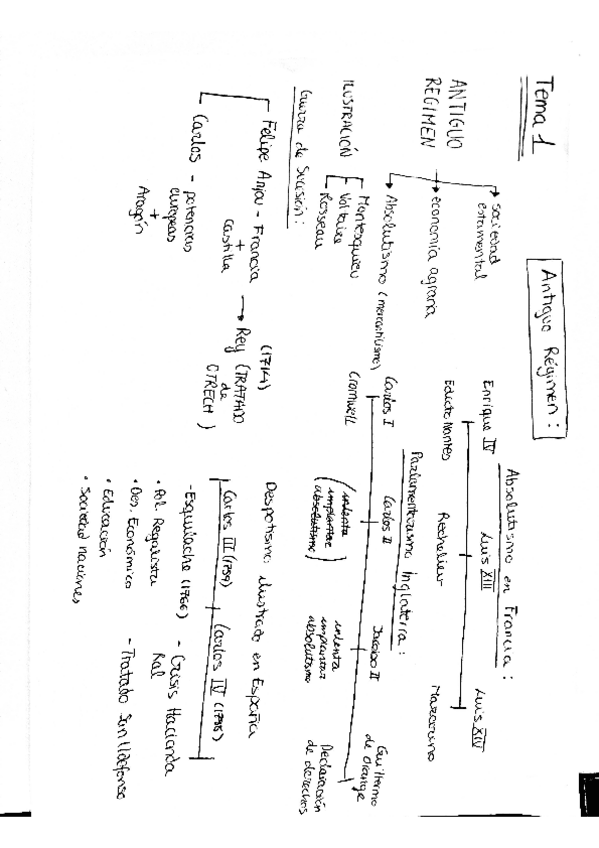 Tema 1
Antiguo Régimen :
ANTIGUO
REGIMEN
sociedad
estamental
economia agraria
Absolutismo (mercantilismo)
ILUSTRACIÓN
Montesquieu
Voltaire
Rosseau
Guerra de Sucesión :
Felipe Anjou - Francia
+
Castilla
Carlos - potencias
europeas
+
Aragón
(1714)
Rey (TRATADO
de
UTRECH)
Absolutismo en Francia :
Enrique IV
Luis XIII
Luis XIV
Edicto Nantes
Rechelieu
Mazarano
Parlamentarismo Inglaterra :
Carlos I
Carlos II
Jacobo II
Guillermo
de orange
Cromwell
(intenta
implantar
absolutismo)
intenta
implantar
absolutismo
Declaración
de derechos
Despotismo ilustrado en España
Carlos III (1759)
Carlos IV (1788)
-Esquilache (1766)
• Pol. Regalista
• Des. Económico
• Educación
• Sociedad naciones
- Crisis Hacienda
Ral
- Tratado San Ildefonso